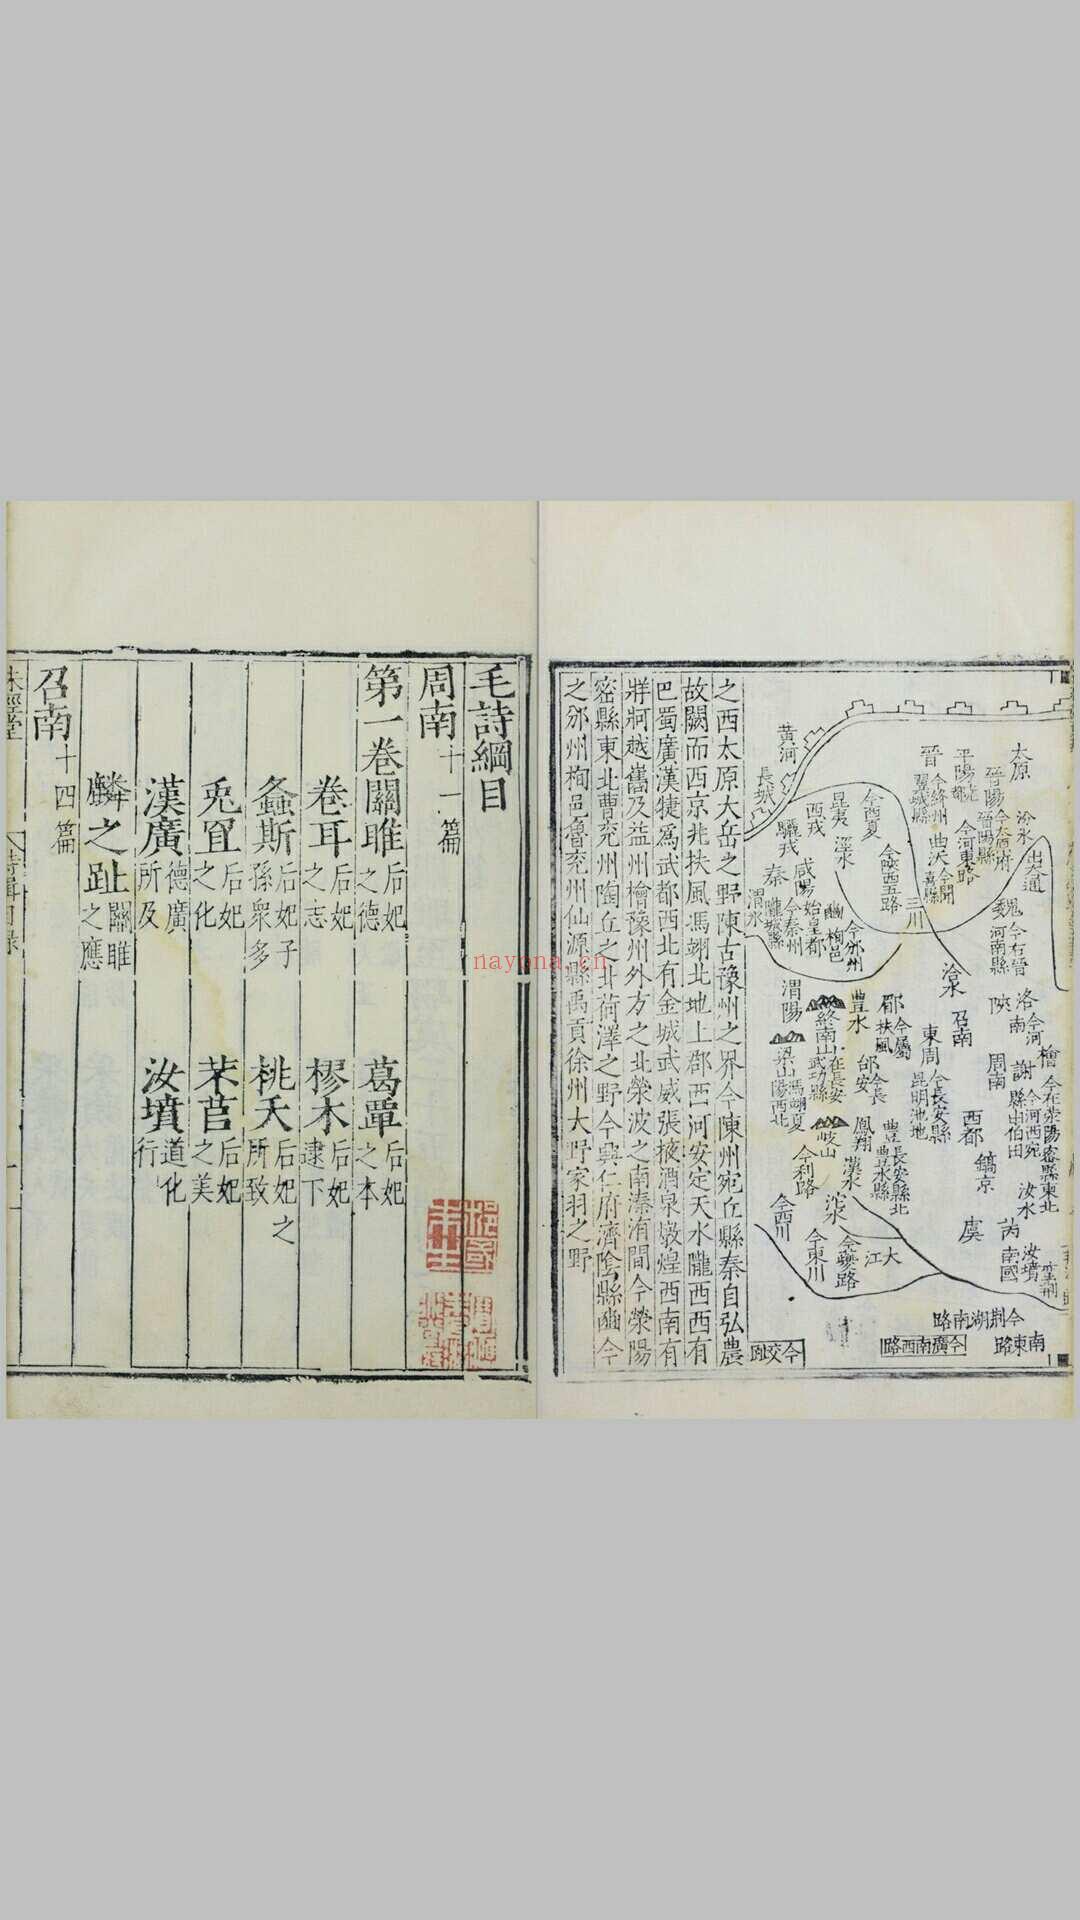 太原
汾水
出大通
晉陽
今太原府
晉陽縣
平陽
堯都
今河東路
晉
今絳州
翼城縣
曲沃
今聞
喜縣
魏
今在晉
河南縣
黃河
長城
驪戎
西戎
昆夷
今西夏
今陝西五路
三川
秦
隴城縣
今秦州
咸陽
始皇都
豳
栒邑
今邠州
渭水
渭陽
終南山
在長安
武功縣
豐水
郿
今屬
扶風
東周
今長安縣
昆明池地
召南
洽水
陝
洛
今河
南
檜
今在滎陽
密縣東北
謝
今河西宛
縣由伯田
周南
西都
鎬京
汝水
虞
芮
南國
汝墳
梁山
馮翊夏
陽西北
岐山
鳳翔
邰
今長
安
豐
長安縣北
豐水縣
漢水
沱水
今利路
今西川
今東川
今夔路
大江
今荆湖南路
今廣南西路
南東路
今交趾
之西太原大岳之野陳古豫州之界今陳州宛丘縣秦自弘農
故關而西京兆扶風馮翊北地上郡西河安定天水隴西西有
巴蜀廣漢犍爲武都西北有金城武威張掖酒泉燉煌西南有
牂牁越巂及益州檜豫州外方之北滎波之南溱洧間今滎陽
密縣東北曹兖州陶丘之北荷澤之野今興仁府濟陰縣豳今
之邠州栒邑魯兖州仙源縣禹貢徐州大野蒙羽之野
毛詩綱目
周南十一篇
第一卷關雎后妃之德 葛覃后妃之本
卷耳后妃之志 樛木后妃逮下
螽斯后妃子孫衆多 桃夭后妃之所致
兎罝后妃之化 芣苢后妃之美
漢廣德廣所及 汝墳道化行
麟之趾關雎之應
召南十四篇
味經堂
詩緝目錄
nayona.cn